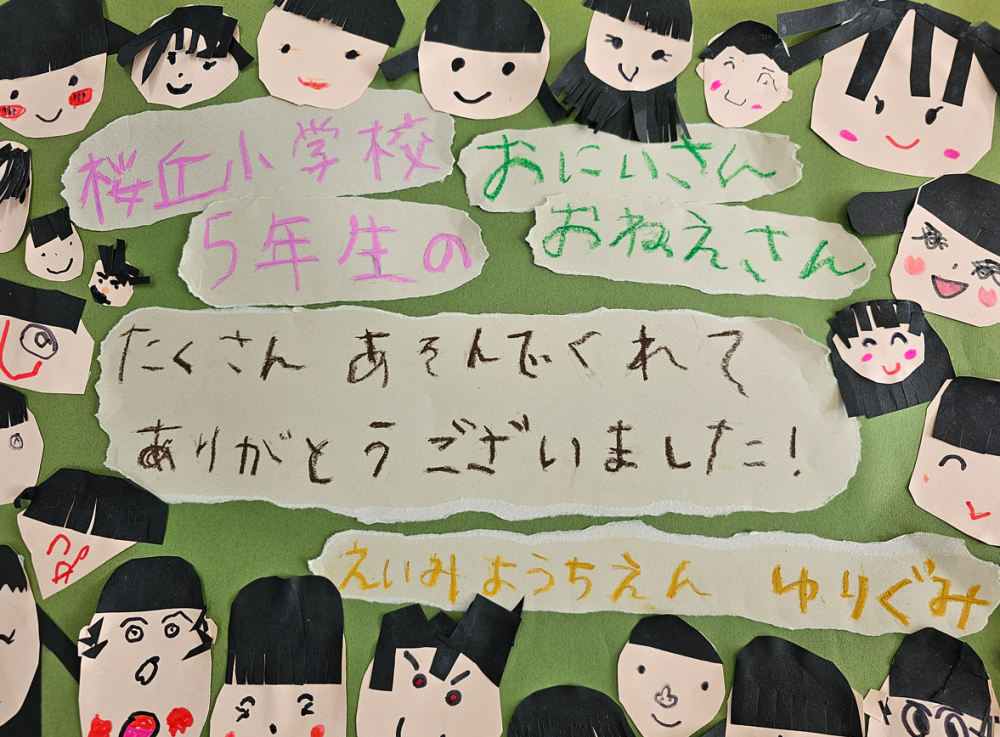 桜丘小学校
5年生の
おにいさん
おねえさん
たくさん あそんでくれて
ありがとうございました!
えいみようちえん ゆりぐみ